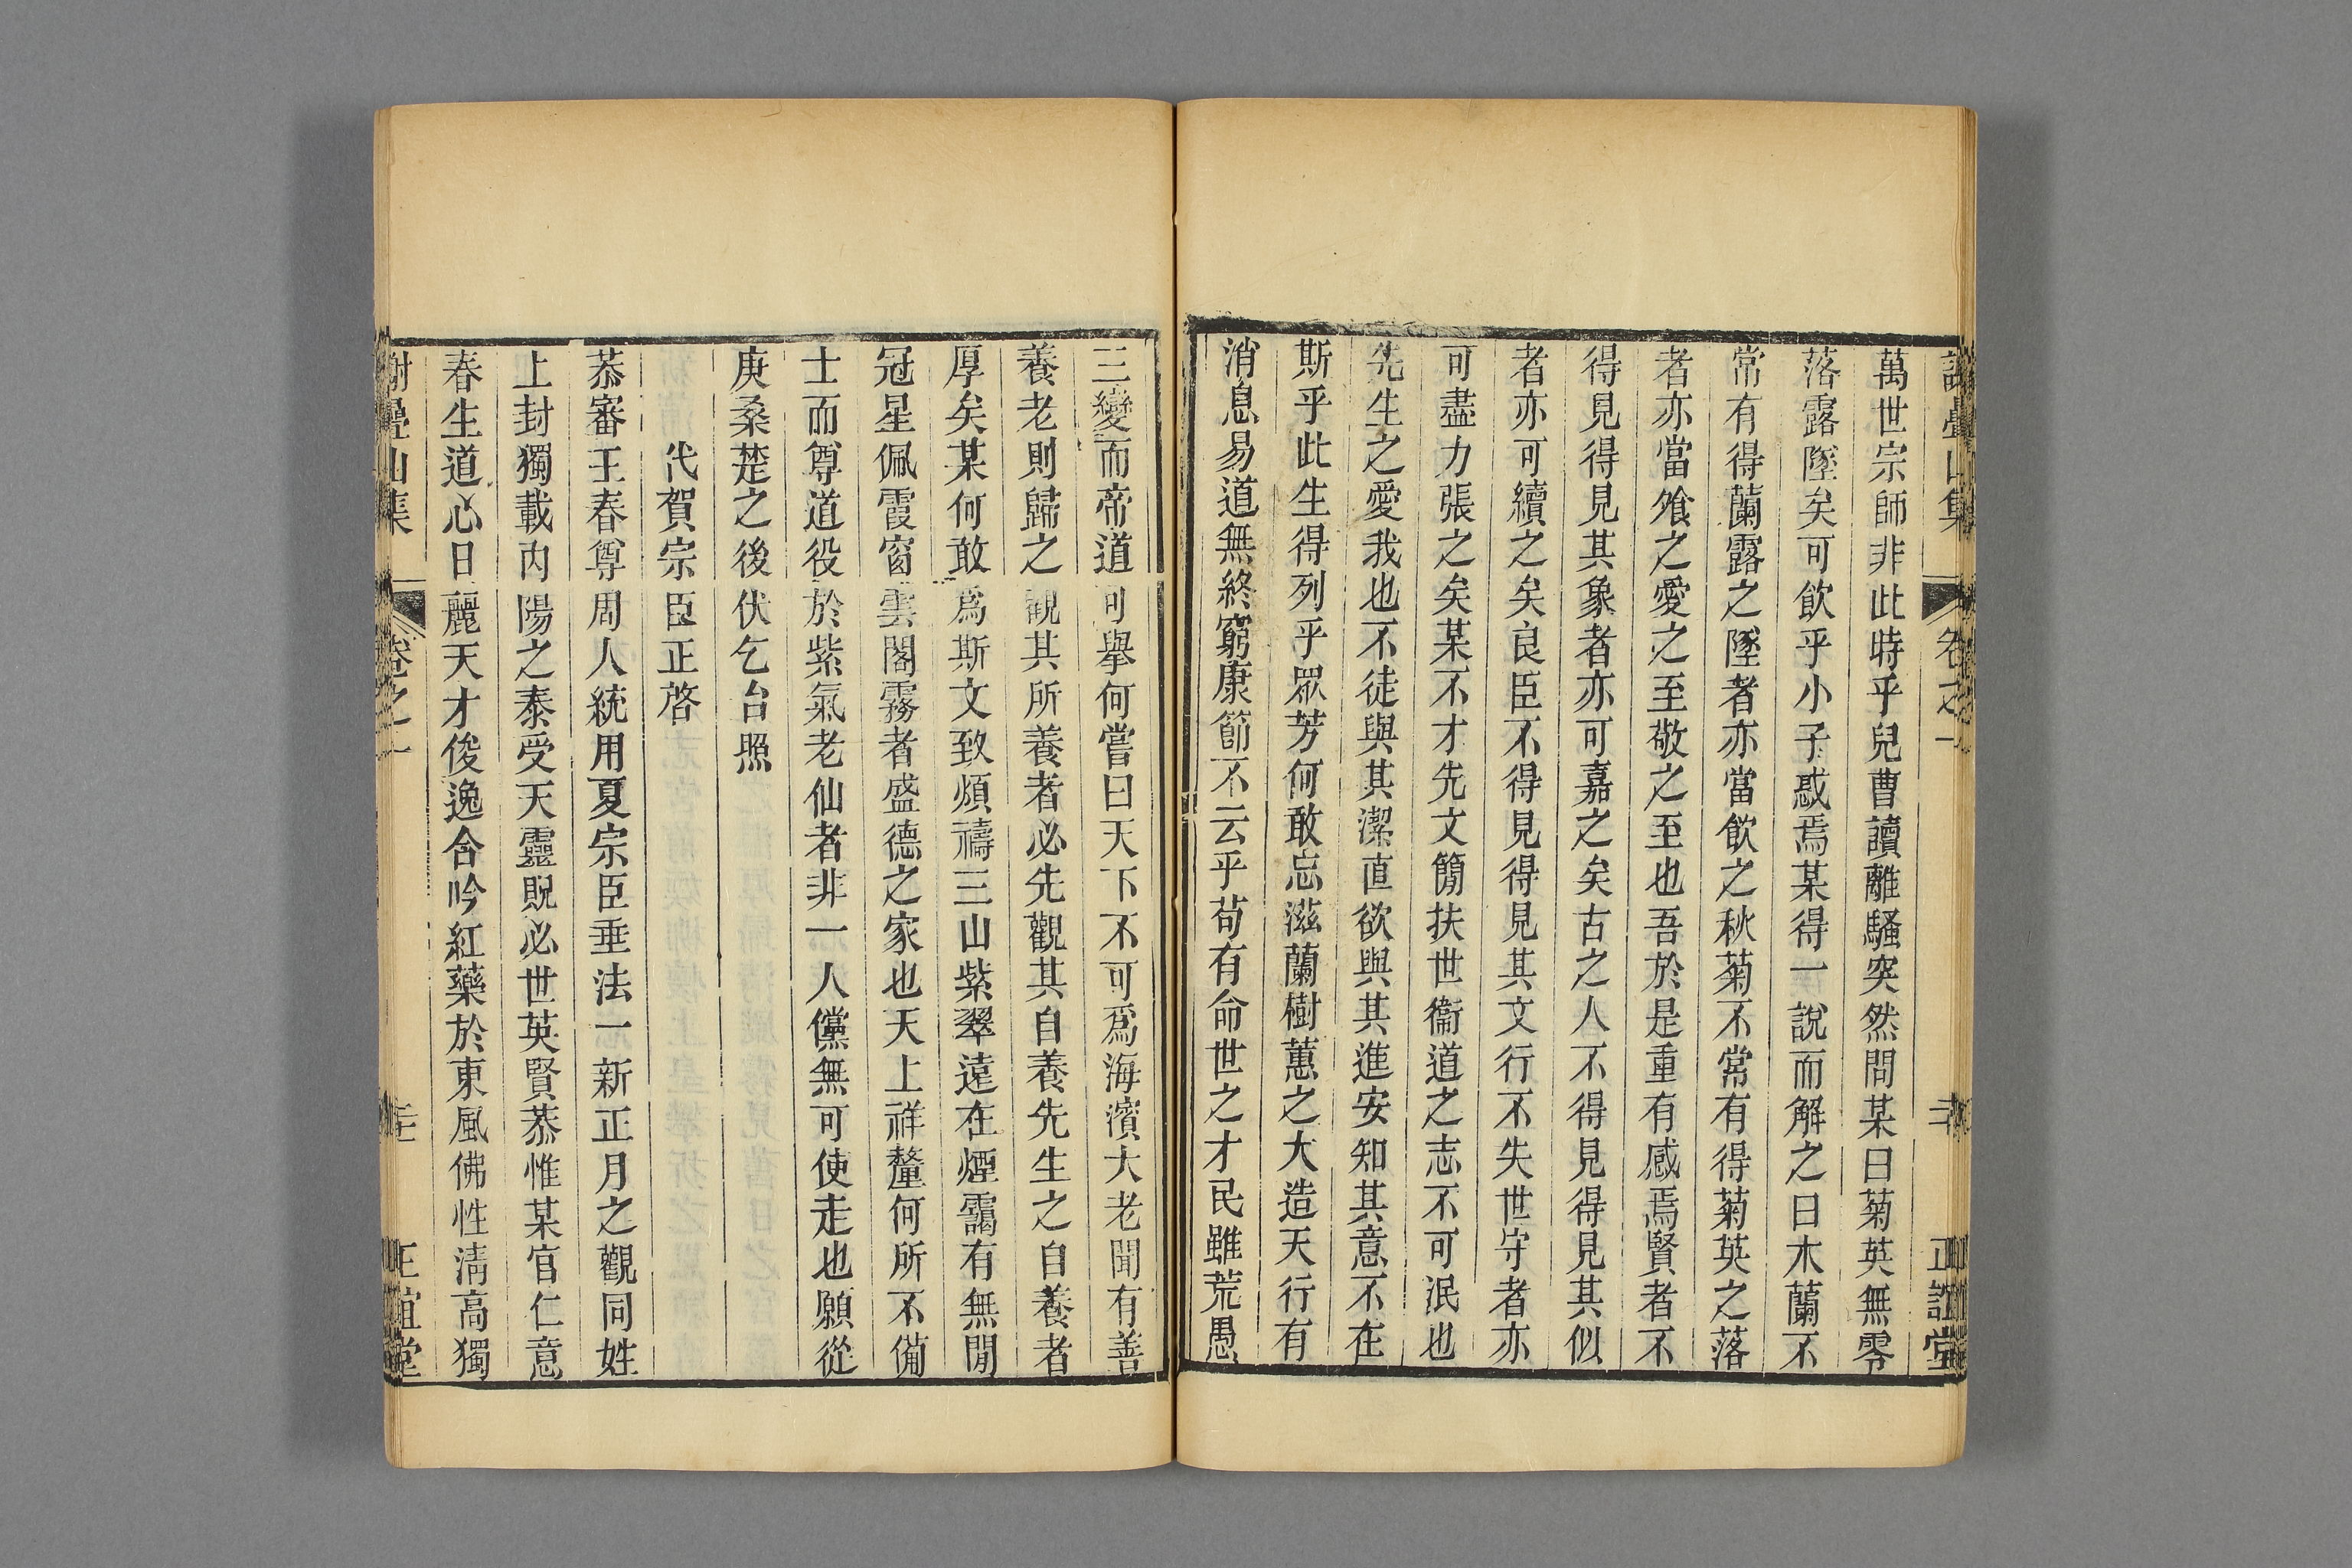 萬世宗師非此時乎兒曹讀離騷突然問某曰菊英無零
落露墜矣可飲乎小子惑焉某得一說而解之曰木蘭不
常有得蘭露之墜者亦當飲之秋菊不常有得菊英之落
者亦當飧之愛之至敬之至也吾於是重有感焉賢者不
得見得見其象者亦可嘉之矣古之人不得見得見其似
者亦可續之矣良臣不得見得見其文行不失世守者亦
可盡力張之矣某不才先文簡扶世衞道之志不可泯也
先生之愛我也不徒與其潔直欲與其進安知其意不在
斯乎此生得列乎眾芳何敢忘滋蘭樹蕙之大造天行有
消息易道無終窮康節不云乎苟有命世之才民雖荒愚
三變而帝道可擧何嘗曰天下不可爲海濱大老聞有善
養老則歸之觀其所養者必先觀其自養先生之自養者
厚矣某何敢爲斯文致煩禱三山紫翠遠在煙靄有無閒
冠星佩霞窗雲閣霧者盛德之家也天上祥釐何所不備
士而尊道役於紫氣老仙者非一人儻無可使走也願從
庚桑楚之後伏乞台照
代賀宗臣正啓
恭審王春尊周人統用夏宗臣垂法一新正月之觀同姓
上封獨載內陽之泰受天靈貺必世英賢恭惟某官仁意
春生道心日麗天才俊逸合吟紅藥於東風佛性淸高獨
謝疊山集 卷之一 正誼堂